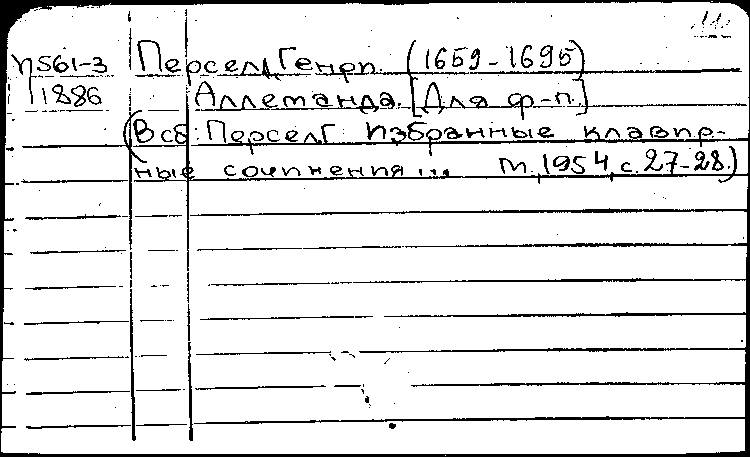 11.
П561-3 Перселл, Генри. (1659-1695)
11886 Аллеманда. [Для ф-п.]
(В сб.: Перселл Г. Избранные клавир-
ные сочинения... М., 1954, с. 27-28.)